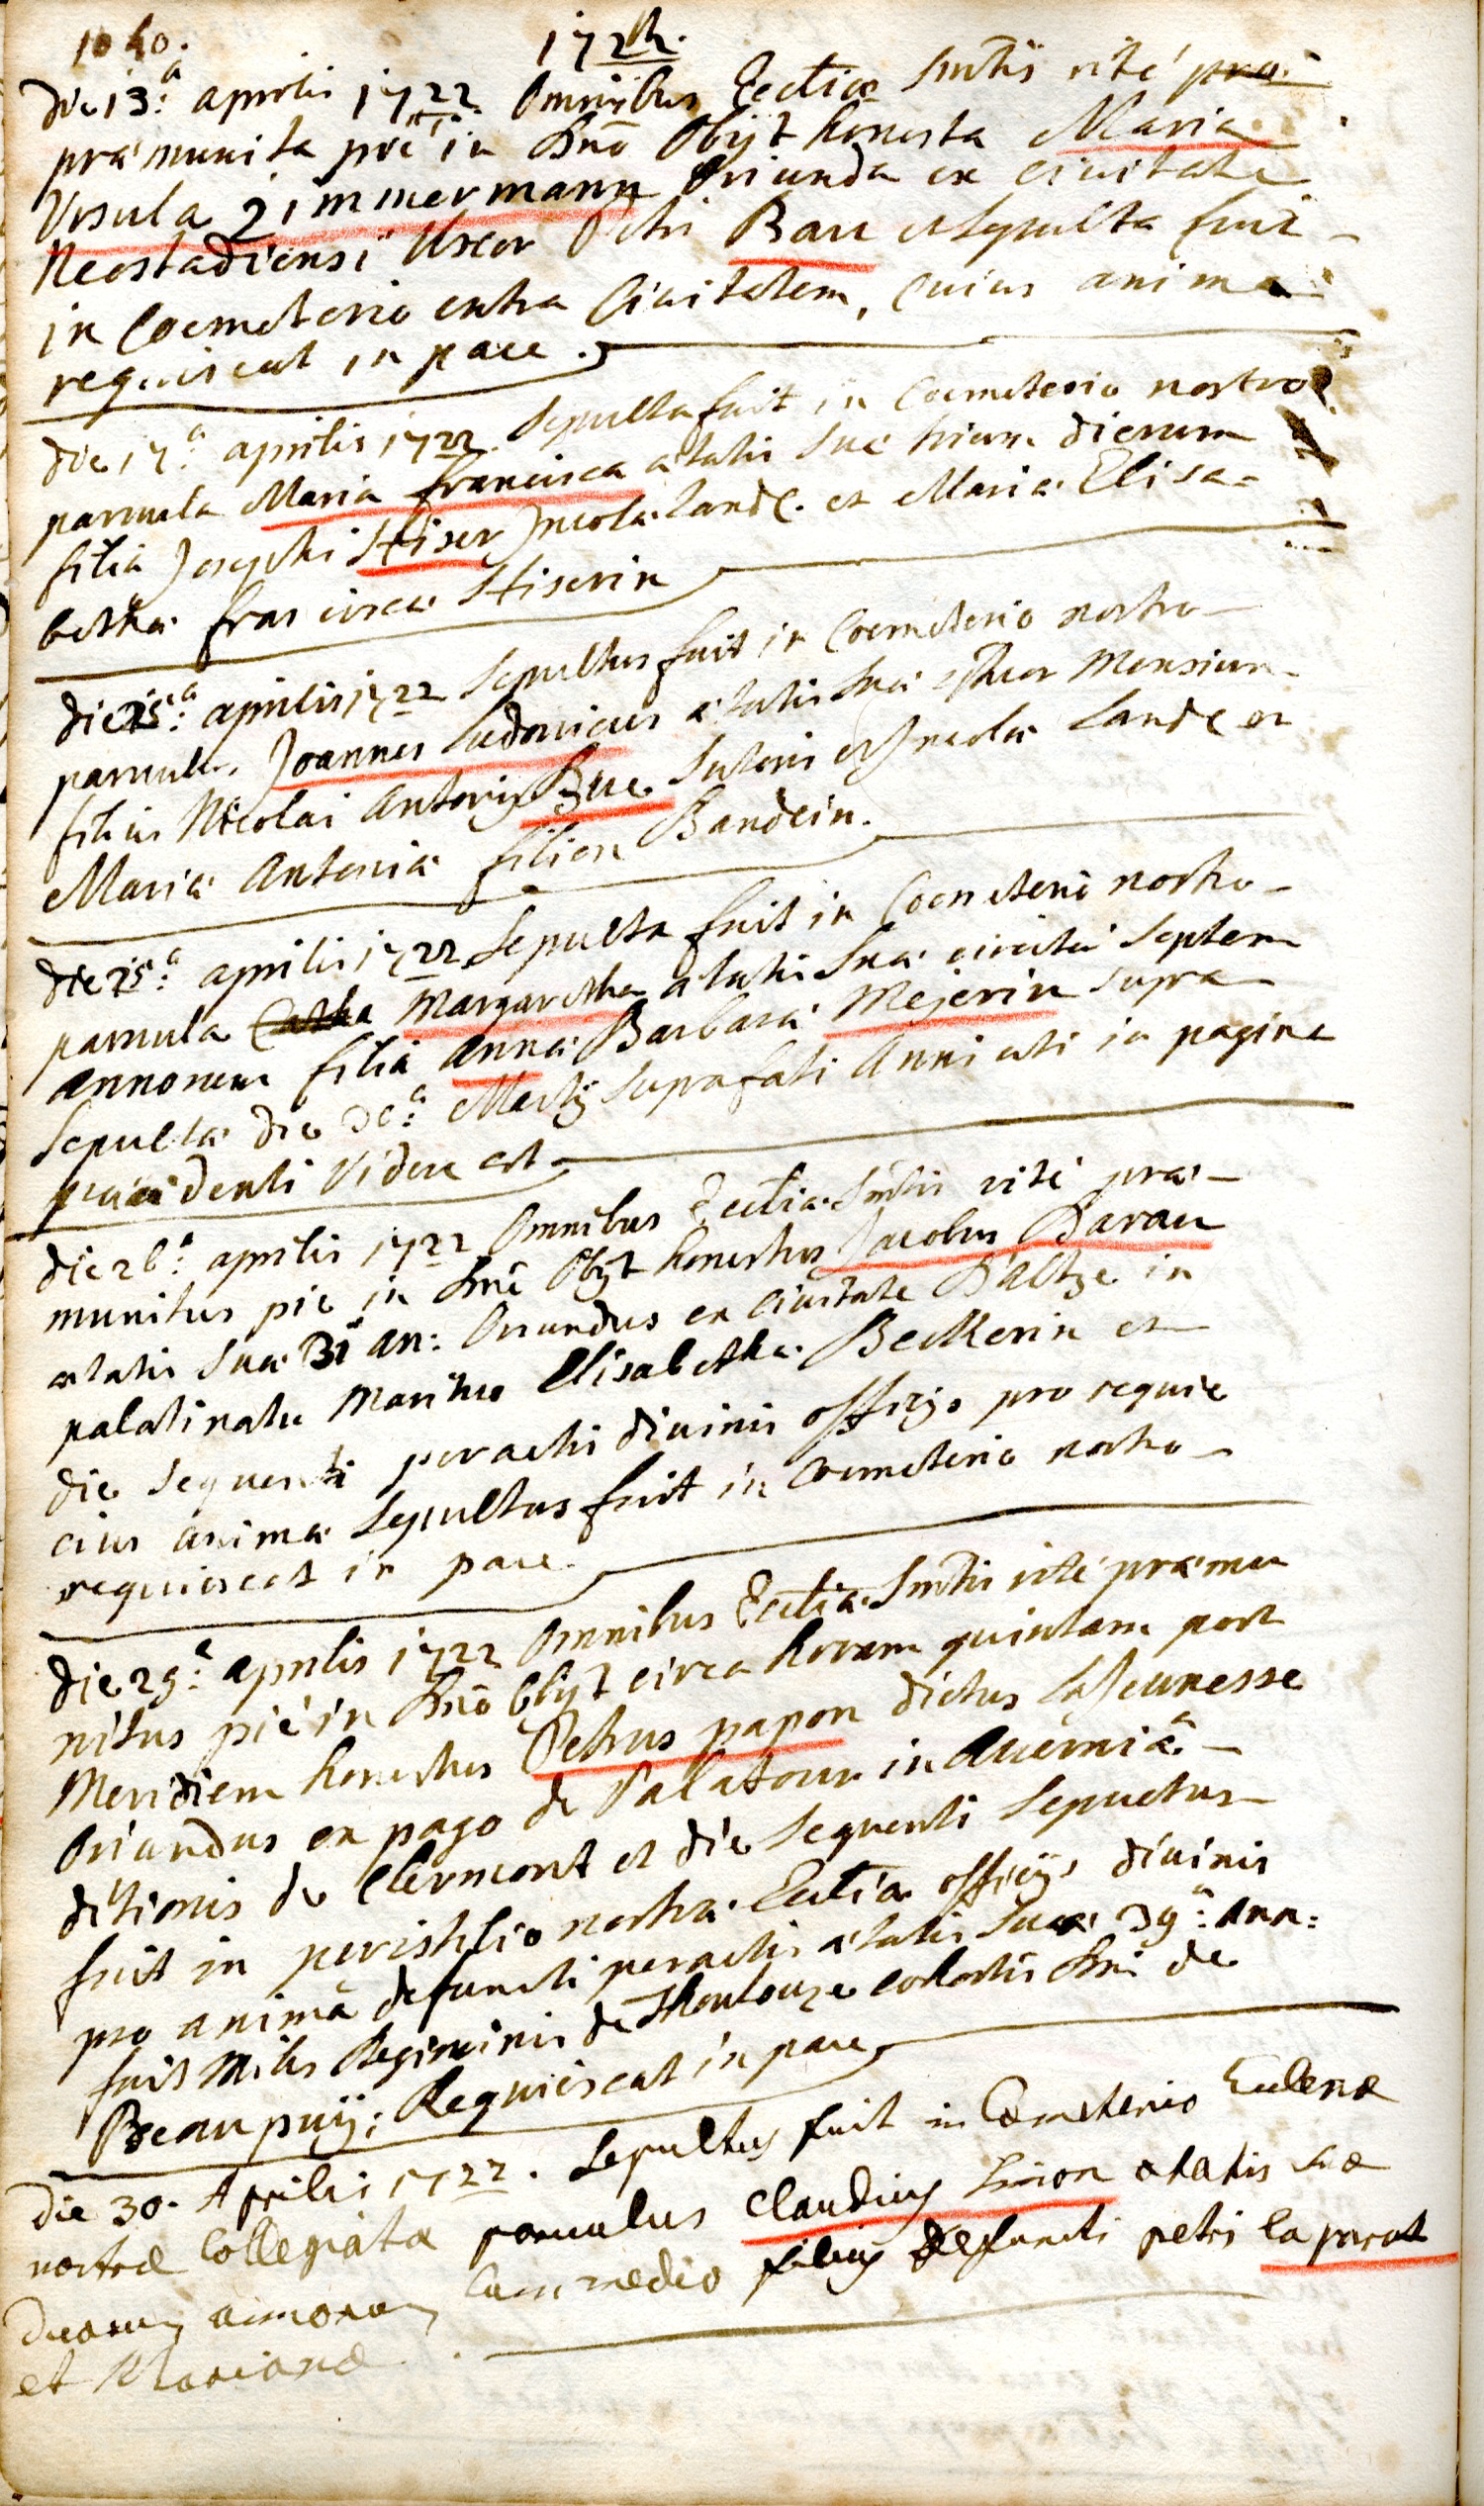 1040. 1722.
die 13.a aprilis 1722 Omnibus Ecctiæ Smtis rité præ-
præmunita pié in Dnō Obijt honesta Maria
Vrsula Zimmermann Oriunda ex ciuitate
Neostadiensi Vxor Petri Bau et sepulta fuit
in Coemeterio extra Ciuitatem, cuius anima
requiescat in pace.
die 17.a aprilis 1722 Sepulta fuit in Coemeterio nostro
paruula Maria francisca ætatis suæ trium dierum
filia Josephi Hiser Incolæ Landæ. et Mariæ Elisa-
bethæ franciscæ Hiserin
die 25.a aprilis 1722 Sepultus fuit in Coemeterio nostro
paruulus Joannes Ludouicus ætatis suæ Mensium
filius Nicolai Antonij Bue Sutoris et Incolæ Landæ et
Mariæ Antoniæ filion Bandein.
die 25.a aprilis 1722 Sepulta fuit in Coemeterio nostro
paruula Margaretha ætatis suæ circiter Septem
annorum filia Annæ Barbaræ Mejerin supra
Sepultæ die Martij suprafati Anni uti in pagina
præcedenti Videre est
die 26.a aprilis 1722 Omnibus Ecctiæ Smtis rité præ-
munitus pie in Dnō Obijt honestus Jacobus Barau
ætatis suæ 31 an: Oriundus ex Ciuitate Baltze in
palatinatu Maritus Elisabethæ Beckerin et
die sequenti peractis diuinis officijs pro requie
eius animæ Sepultus fuit in Coemeterio nostro
requiescat in pace.
die 29.a aprilis 1722 Omnibus Ecctiæ Smtis rité præmu
nitus pié in Dnō Obijt circa horam quintam post
Meridiem honestus Petrus papon dictus LaJeunesse
Oriundus ex pago de Palatour in Auerniâ
ditionis de Clermont et die sequenti Sepultus
fuit in peristilio nostræ Ecctiæ officijs diuinis
pro animâ defuncti peractis ætatis suæ 39.a ann:
fuit Miles Regiminis de Thoulouze cohortis Dni de
Beaupuij; Requiescat in pace
die 30. Aprilis 1722. Sepultus fuit in Coemeterio Ecclesiæ
nostræ Collegiatæ paruulus Claudius Simon ætatis suæ
duorum annorum cum medio filius defuncti petri la parat
et Marianæ.